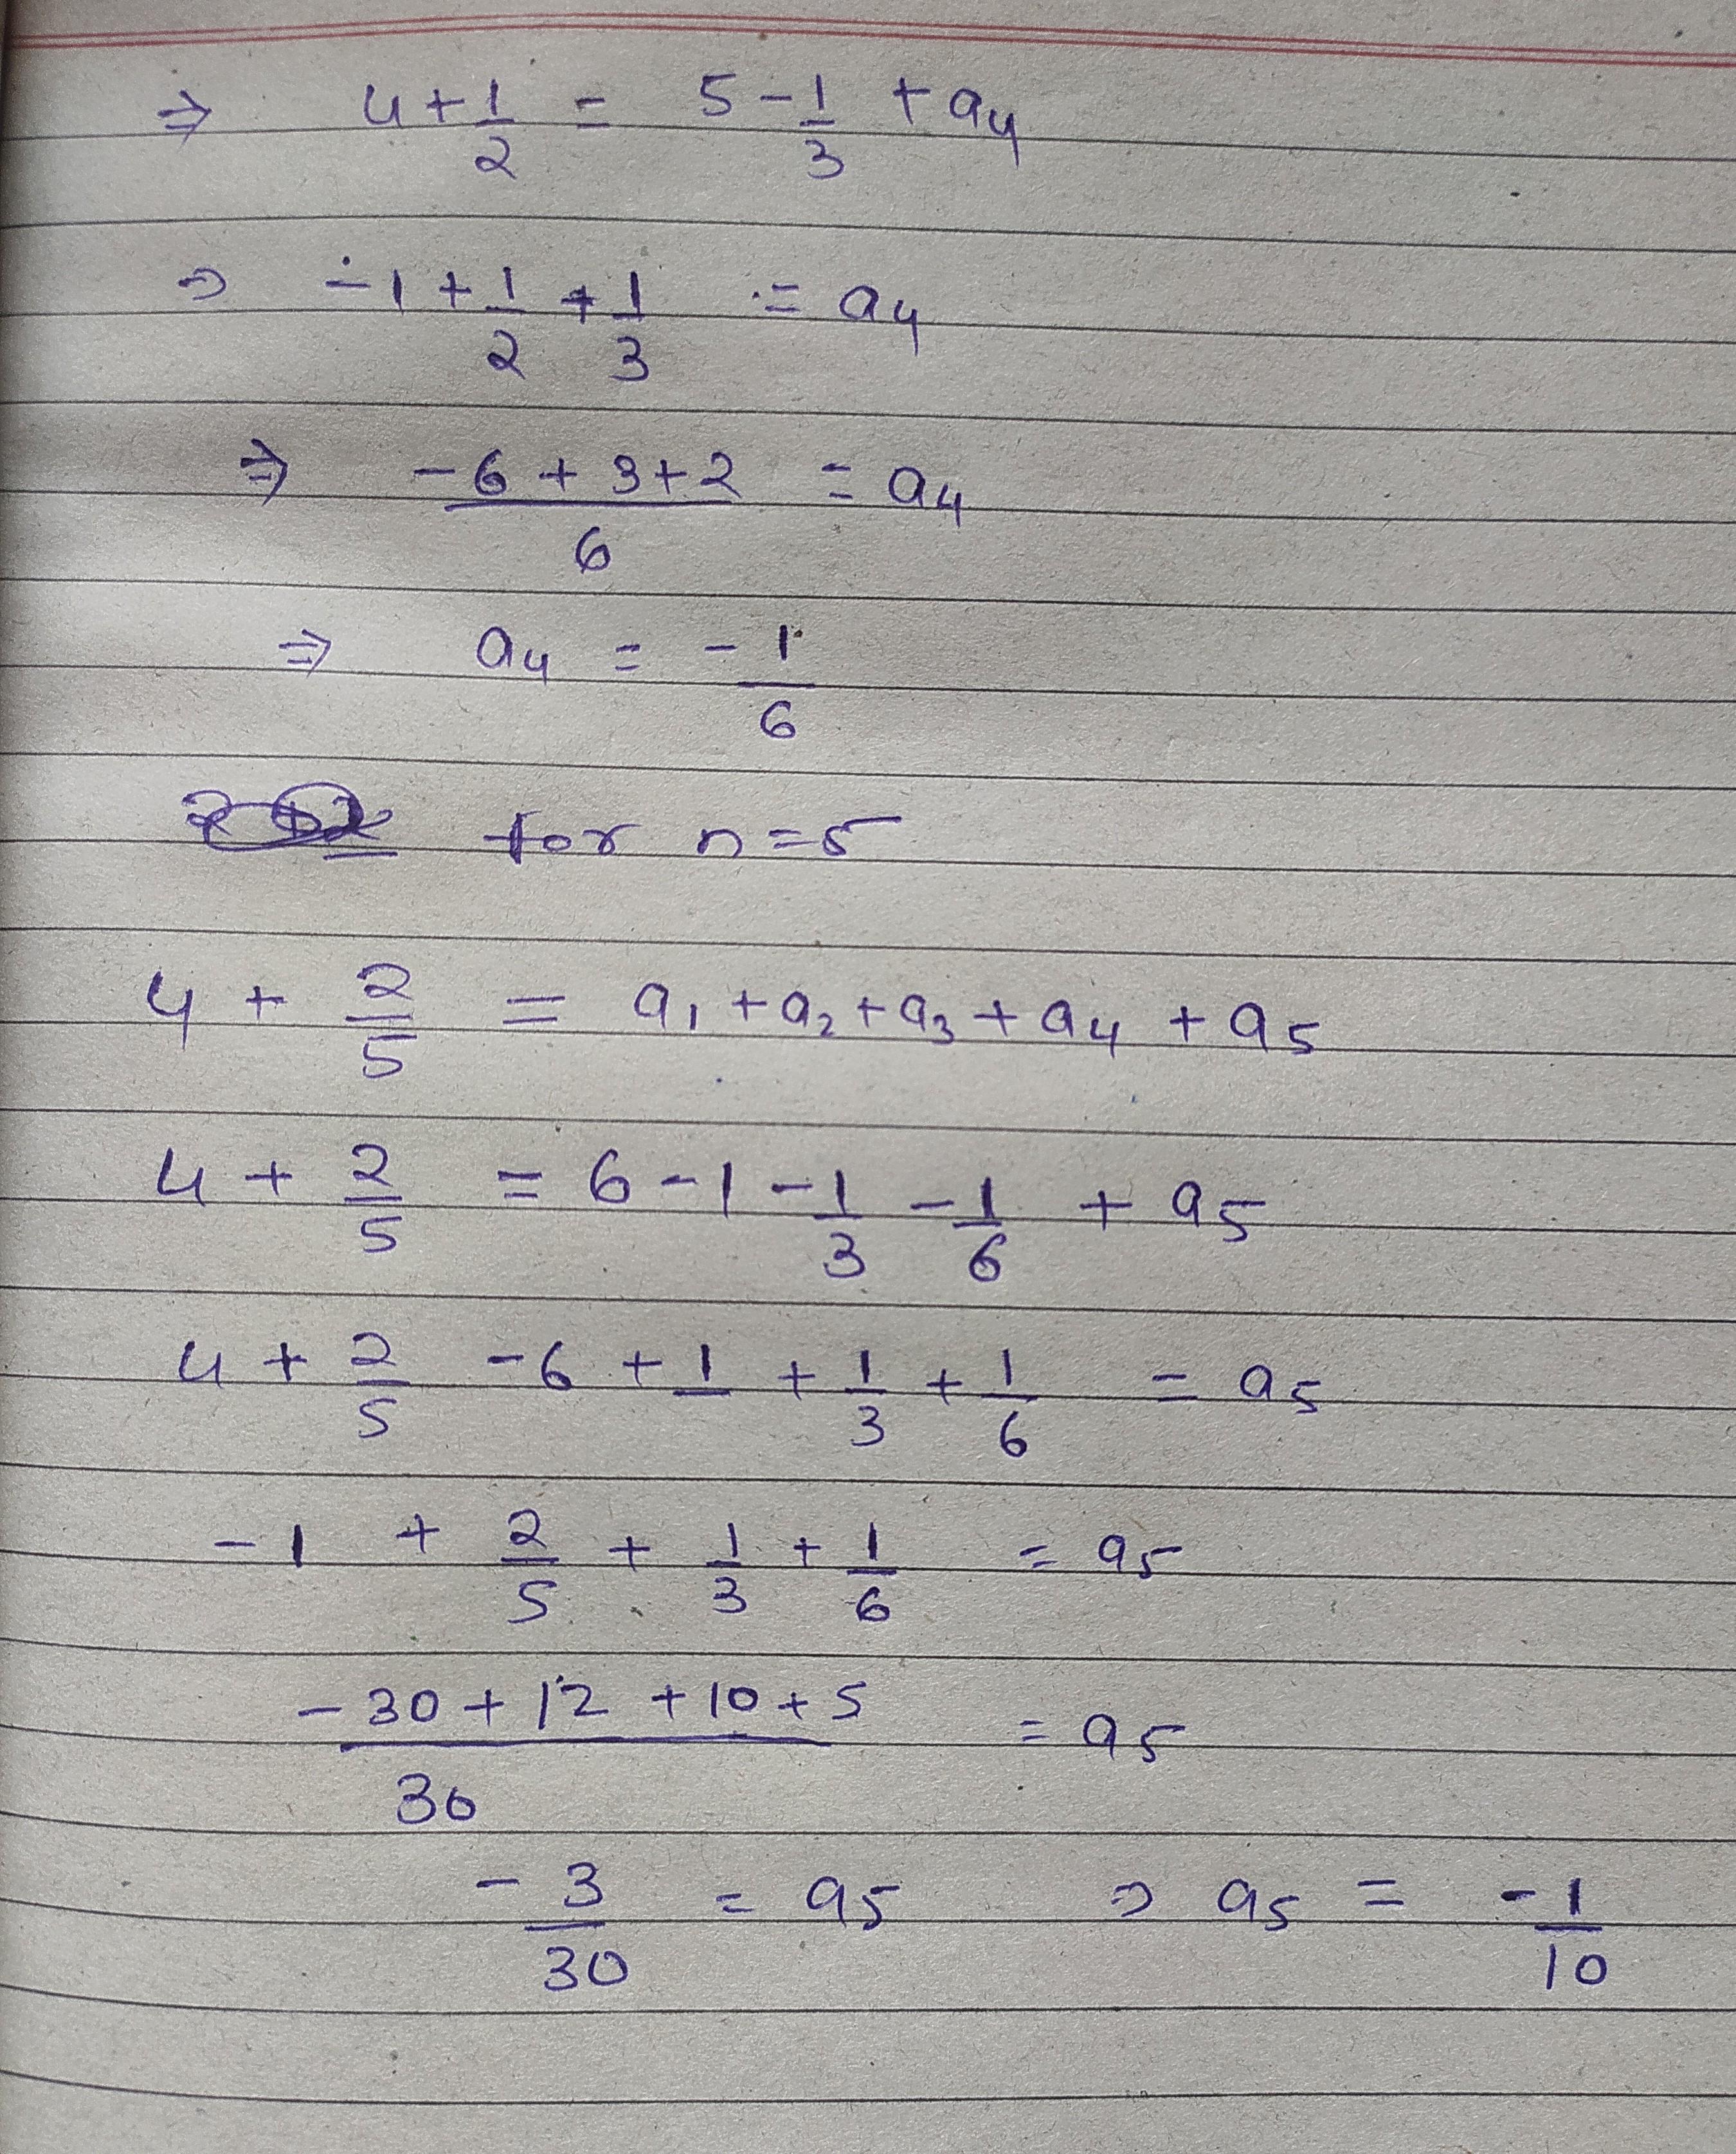 ⇒ 4 + 1/2 = 5 - 1/3 + a4
⇒ -1 + 1/2 + 1/3 = a4
⇒ (-6 + 3 + 2)/6 = a4
⇒ a4 = -1/6
for n = 5
4 + 2/5 = a1 + a2 + a3 + a4 + a5
4 + 2/5 = 6 - 1 - 1/3 - 1/6 + a5
4 + 2/5 - 6 + 1 + 1/3 + 1/6 = a5
-1 + 2/5 + 1/3 + 1/6 = a5
(-30 + 12 + 10 + 5)/30 = a5
-3/30 = a5 ⇒ a5 = -1/10